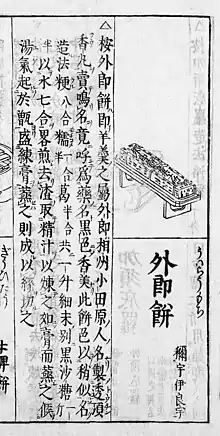 うゐらうもち
外郎餅
伊良宇
△按外郎餅即羊羹之屬外郎相州小田原人名製透頂
香丸賣鳴名竟呼爲藥名黑色香美此餅色以稍似名
造法粳八合糯一合葛半合共一升細末別黑沙糖斤
半以水七合畧煎去渣取精汁以煉之如膏而蒸之候
湯氣起於甑盛練膏蒸之則成以絲切之